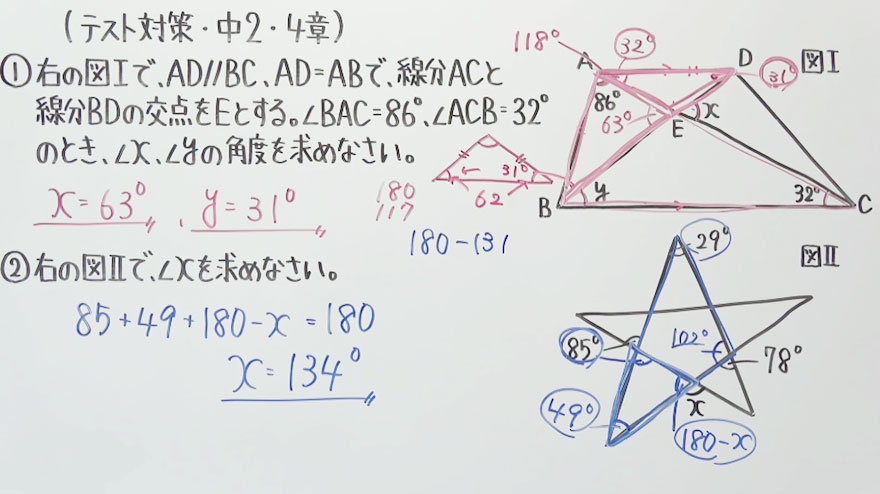 (テスト対策・中2・4章)
①右の図Ⅰで、AD//BC、AD=ABで、線分ACと
線分BDの交点をEとする。∠BAC=86°、∠ACB=32°
のとき、∠x、∠yの角度を求めなさい。
x=63°、y=31°
180
117
31°
62
180-131
118°
A
32°
D
31°
図Ⅰ
86°
63°
x
E
B
y
32°
C
②右の図Ⅱで、∠xを求めなさい。
85+49+180-x=180
x=134°
29°
図Ⅱ
85°
102°
78°
49°
x
180-x